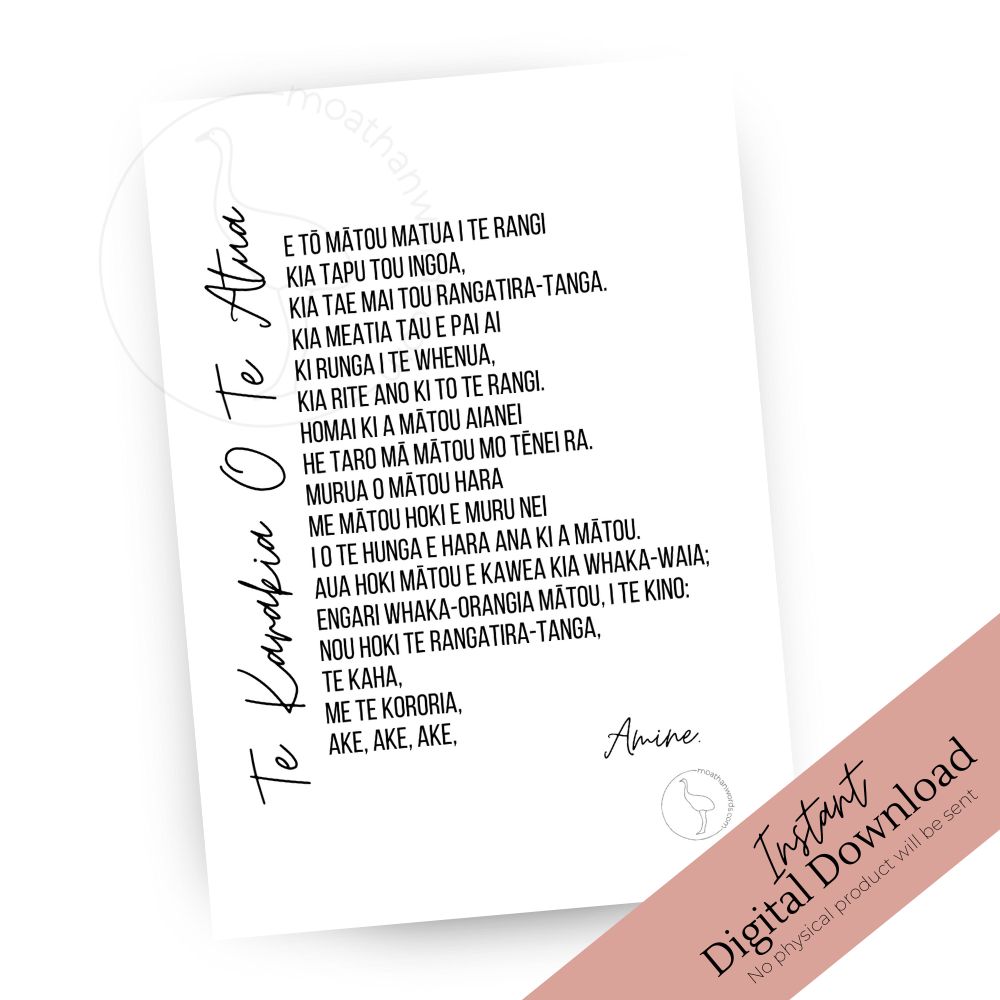 moathanwords
Te Karakia O Te Atua
E TŌ MĀTOU MATUA I TE RANGI
KIA TAPU TOU INGOA,
KIA TAE MAI TOU RANGATIRA-TANGA.
KIA MEATIA TAU E PAI AI
KI RUNGA I TE WHENUA,
KIA RITE ANO KI TO TE RANGI.
HOMAI KI A MĀTOU AIANEI
HE TARO MĀ MĀTOU MO TĒNEI RA.
MURUA O MĀTOU HARA
ME MĀTOU HOKI E MURU NEI
I O TE HUNGA E HARA ANA KI A MĀTOU.
AUA HOKI MĀTOU E KAWEA KIA WHAKA-WAIA;
ENGARI WHAKA-ORANGIA MĀTOU, I TE KINO:
NOU HOKI TE RANGATIRA-TANGA,
TE KAHA,
ME TE KORORIA,
AKE, AKE, AKE,
Amine.
moathanwords.com
Instant
Digital Download
No physical product will be sent